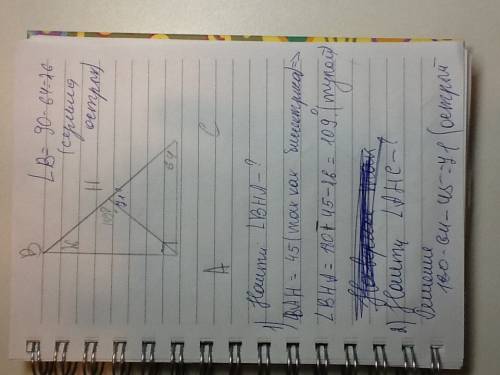 ∠B = 90-64=26
(сервый острый)
B
26
H
109°
71°
64
A
C
1) Найти ∠BHA-?
∠BAH = 45 (так как биссектриса) =>
∠BHA = 180-45-26 = 109° (тупой)
2) Найти ∠AHC-?
Решение
180-64-45=71 (острый